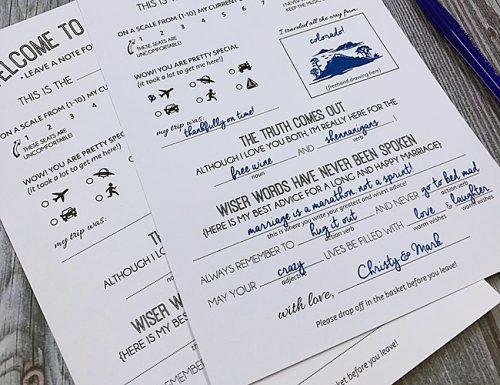 WELCOME TO
• LEAVE A NOTE FO
THIS IS THE
ON A SCALE FROM (1-10) MY CU
1 2
3 4
THESE SEATS ARE
UNCOMFORTABLE!
WOW! YOU ARE PRETTY
(it took a lot to get me here!)
my trip was:
TH
ALTHOUGH I LOV
WISER
(HERE IS MY BES
basket before you leave!
THIS IS THE
ON A SCALE FROM (1-10) MY CURRENT
1 2
3 4
THESE SEATS ARE
UNCOMFORTABLE!
WOW! YOU ARE PRETTY SPECIAL
(it took a lot to get me here!)
my trip was: thankfully on time!
KEEP THE MUSIC
I traveled all the way from:
colorado!
(freehand drawing here)
THE TRUTH COMES OUT
ALTHOUGH I LOVE YOU BOTH, I'M REALLY HERE FOR THE
free wine AND shenanigans!
noun verb
WISER WORDS HAVE NEVER BEEN SPOKEN
(HERE IS MY BEST ADVICE FOR A LONG AND HAPPY MARRIAGE)
marriage is a marathon not a sprint!
this is where you write your greatest and wisest advice!
ALWAYS REMEMBER TO hug it out AND NEVER go to bed mad
action verb action verb
MAY YOUR crazy LIVES BE FILLED WITH love & laughter
adjective warm wishes warm wishes
with love, Christy & Mark
Please drop off in the basket before you leave!